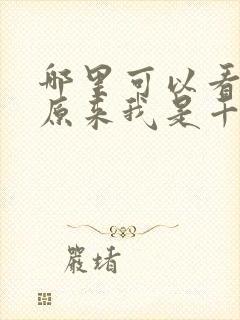 哪里可以看
原来我是十
严堵